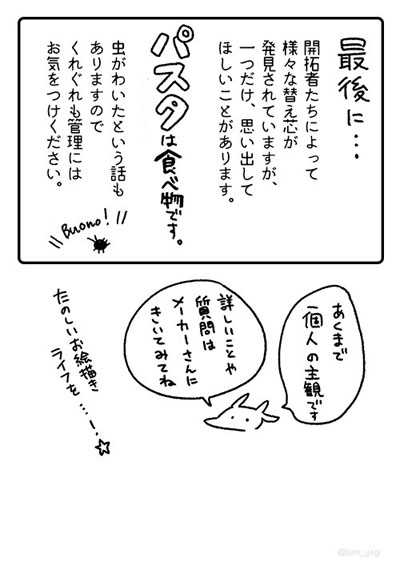 最後に…
開拓者たちによって
様々な替え芯が
発見されていますが、
一つだけ、思い出して
ほしいことがあります。
パスタは食べ物です。
虫がわいたという話も
ありますので
くれぐれも管理には
お気をつけください。
Buono!
あくまで
個人の主観です
詳しいことや
質問は
メーカーさんに
きいてみてね
たのしいお絵描き
ライフを…!☆
@tami_yagi